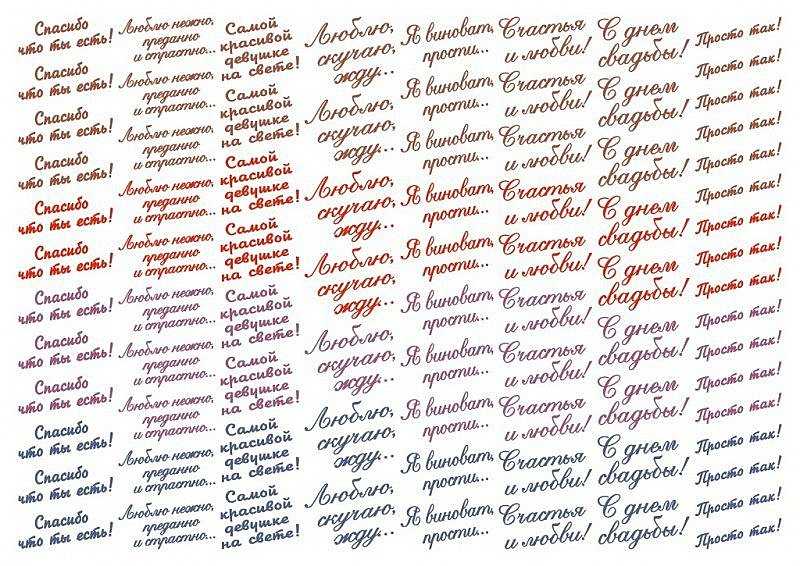 Спасибо
что ты есть!
Спасибо
что ты есть!
Спасибо
что ты есть!
Спасибо
что ты есть!
Спасибо
что ты есть!
Спасибо
что ты есть!
Спасибо
что ты есть!
Спасибо
что ты есть!
Спасибо
что ты есть!
Спасибо
что ты есть!
Спасибо
что ты есть!
Спасибо
что ты есть!
Люблю нежно,
преданно
и страстно...
Люблю нежно,
преданно
и страстно...
Люблю нежно,
преданно
и страстно...
Люблю нежно,
преданно
и страстно...
Люблю нежно,
преданно
и страстно...
Люблю нежно,
преданно
и страстно...
Люблю нежно,
преданно
и страстно...
Люблю нежно,
преданно
и страстно...
Люблю нежно,
преданно
и страстно...
Люблю нежно,
преданно
и страстно...
Самой
красивой
девушке
на свете!
Самой
красивой
девушке
на свете!
Самой
красивой
девушке
на свете!
Самой
красивой
девушке
на свете!
Самой
красивой
девушке
на свете!
Самой
красивой
девушке
на свете!
Самой
красивой
девушке
на свете!
Самой
красивой
девушке
на свете!
Люблю,
скучаю,
жду...
Люблю,
скучаю,
жду...
Люблю,
скучаю,
жду...
Люблю,
скучаю,
жду...
Люблю,
скучаю,
жду...
Люблю,
скучаю,
жду...
Люблю,
скучаю,
жду...
Я виноват,
прости...
Я виноват,
прости...
Я виноват,
прости...
Я виноват,
прости...
Я виноват,
прости...
Я виноват,
прости...
Я виноват,
прости...
Я виноват,
прости...
Я виноват,
прости...
Я виноват,
прости...
Счастья
и любви!
Счастья
и любви!
Счастья
и любви!
Счастья
и любви!
Счастья
и любви!
Счастья
и любви!
Счастья
и любви!
Счастья
и любви!
Счастья
и любви!
Счастья
и любви!
С днем
свадьбы!
С днем
свадьбы!
С днем
свадьбы!
С днем
свадьбы!
С днем
свадьбы!
С днем
свадьбы!
С днем
свадьбы!
С днем
свадьбы!
С днем
свадьбы!
Просто так!
Просто так!
Просто так!
Просто так!
Просто так!
Просто так!
Просто так!
Просто так!
Просто так!
Просто так!
Просто так!
Просто так!
Просто так!
Просто так!
Просто так!
Просто так!
Просто так!